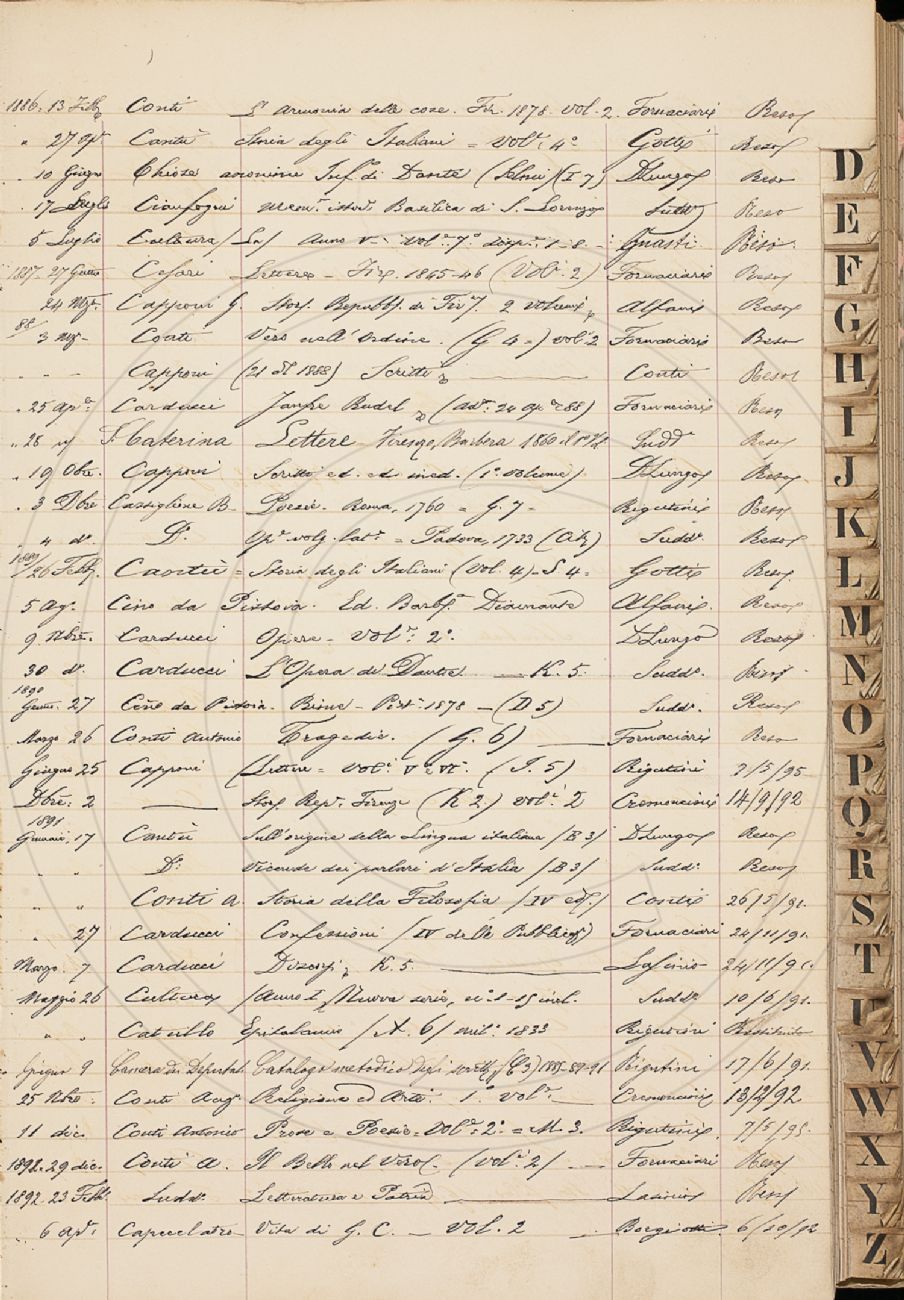 1886. 13 Febb. Conti L'armonia delle cose. Fir. 1878. vol. 2. Fornaciari Reso
" 27 Ap. Cantù Storia degli Italiani = vol. 4° Gotti Reso
" 10 Giugno Chiose anonime Inf. di Dante (Selmi) (I 7) DLungo Reso
" 17 Luglio Cianfogni Mem. istor. Basilica di S. Lorenzo Sudd. Reso
" 5 Luglio Cultura /La/ Anno V - vol. 7° disp. 1-8 - Guasti Reso
1887 27 Genn. Cesari Lettere - Fir. 1845-46 (Vol. 2) Fornaciari Reso
24 Mzo. Capponi G. Stor. Repubb. di Fir. 2 volumi Alfani Reso
88/ 3 Mzo Conti Vero nell'Ordine. (G 4=) vol. 2 Fornaciari Reso
" " Capponi (21 1888) Scritti Conti Reso
" 25 Ap. Carducci Jaufre Rudel (adza. 24 Ap. 88) Fornaciari Reso
" 28 " S. Caterina Lettere Firenze, Barbèra 1860 Sudd. Reso
" 19 8bre. Capponi Scritti ed. ed ined. (1° volume) DLungo Reso
" 3 Dbre Castiglione B. Poesie. Roma, 1760 = G. 7 - Rigutini Reso
" 4 d°. D°. Op. volg. lat. = Padova, 1733 Sudd. Reso
1889/ 26 Febb. Cantù = Storia degli Italiani (Vol. 4) = S 4 = Gotti Reso
5 Ag. Cino da Pistoia. Ed. Barb. Diamante Alfani. Reso
9 Nbre. Carducci Opere - vol. 2°. DLungo Reso
30 d°. Carducci L'Opera di Dante — K. 5. Sudd. Reso
1890
Genn. 27 Cino da Pistoia. Rime - Pist. 1878 - (D 5) Sudd. Reso
Marzo 26 Conti Antonio Tragedie. (G. 6) — Fornaciari Reso
Giugno 25 Capponi Lettere = vol. V e VI. (I. 5) Rigutini 7/5/95
Dbre. 2 — Stor. Rep. Firenze (K 2.) vol. 2 Cremoncini 14/9/92
1891
Gennaio, 17 Cantù Sull'origine della Lingua italiana /B 3/ DLungo Reso
" " D°. Vicende dei parlari d'Italia /B 3/ Sudd. Reso
" " Conti A. Storia della Filosofia /IV ed./ Conti 26/5/91.
" 27 Carducci Confessioni /IV delle Fornaciari 24/11/91.
Marzo. 7 Carducci Discorsi, K. 5. — Lasinio 24/11/91.
Maggio 26 Cultura /Anno I, Nuova serie, n. 1-15 incl. Sudd. 10/6/91.
" " Catullo Epitalamio /A. 6/ mil. 1833 Rigutini Restituito
Giugno 9 Camera dei Deputati Catalogo metodico degli scritti (C 3) Rigutini 17/6/91.
25 Nbre. Conti Aug. Religione ed Arte. 1° vol. — Cremoncini 92
11 dic. Conti Antonio Prose e Poesie = Vol. 2° = M 3. Rigutini. 7/5/95.
1892. 29 dic. Conti A. Il Bello nel Vero. (vol. 2/ — Fornaciari Reso
1892. 23 Febb. Sudd. Letteratura e Patria — Lasinio Reso
6 Ap. Capecelatro Vita di G. C. — Vol. 2 6/10/92
D
E
F
G
H
I
J
K
L
M
N
O
P
Q
R
S
T
U
V
W
X
Y
Z